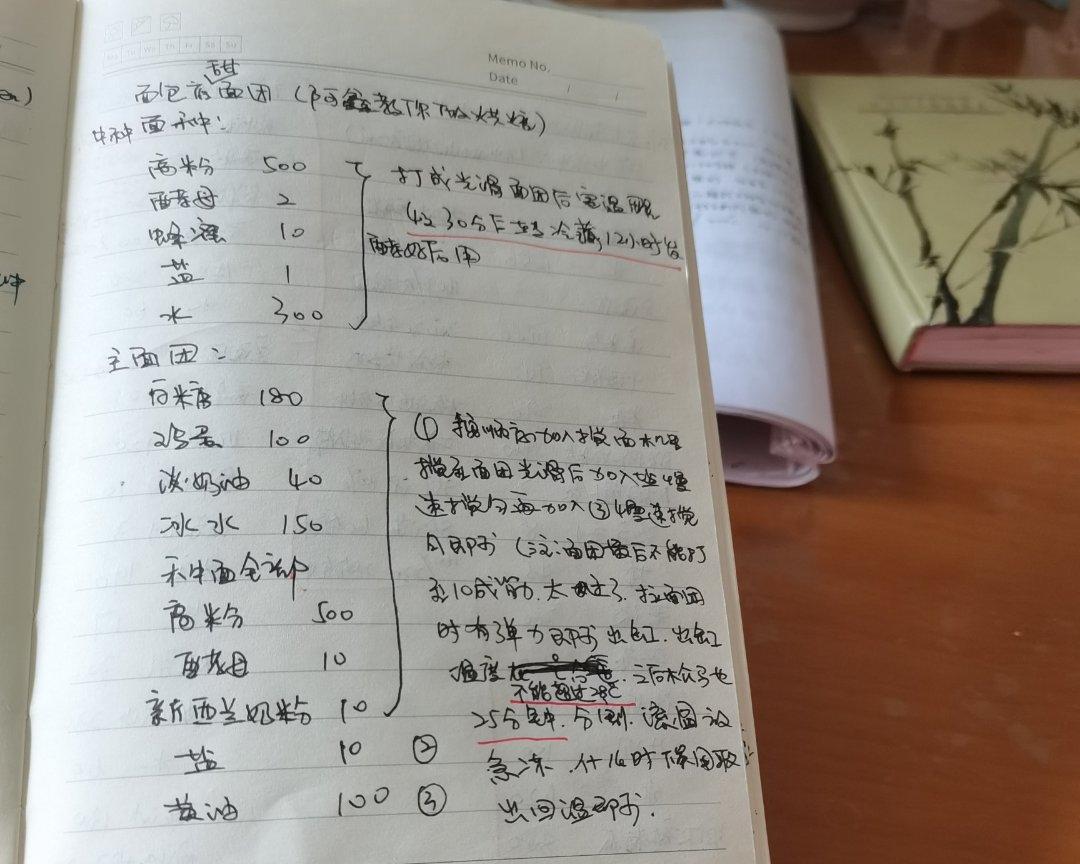 Mo Tu We Th Fr Sa Su
Memo No.
Date / /
甜
面包店面团(阿 教你做烘焙)
中种面种:
高粉 500
酵母 2
蜂蜜 10
盐 1
水 300
打成光滑面团后室温醒
发30分后去冷藏,12小时发
酵好后用
主面团:
白米糖 180
鸡蛋 100
淡奶油 40
冰水 150
种面全部
高粉 500
酵母 10
新西兰奶粉 10
盐 10 ②
黄油 100 ③
① 按顺序加入搅面机里
搅至面团光滑后加入盐慢
速搅匀再加入③慢速搅
匀即可(注:面团最后不能打
至10成筋.太过了.拉面团
时有弹力即可出缸.出缸
温度
不能超过28℃
.之后松弛
25分钟.分割.滚圆放
急冻.什么时候用取
出回温即可.